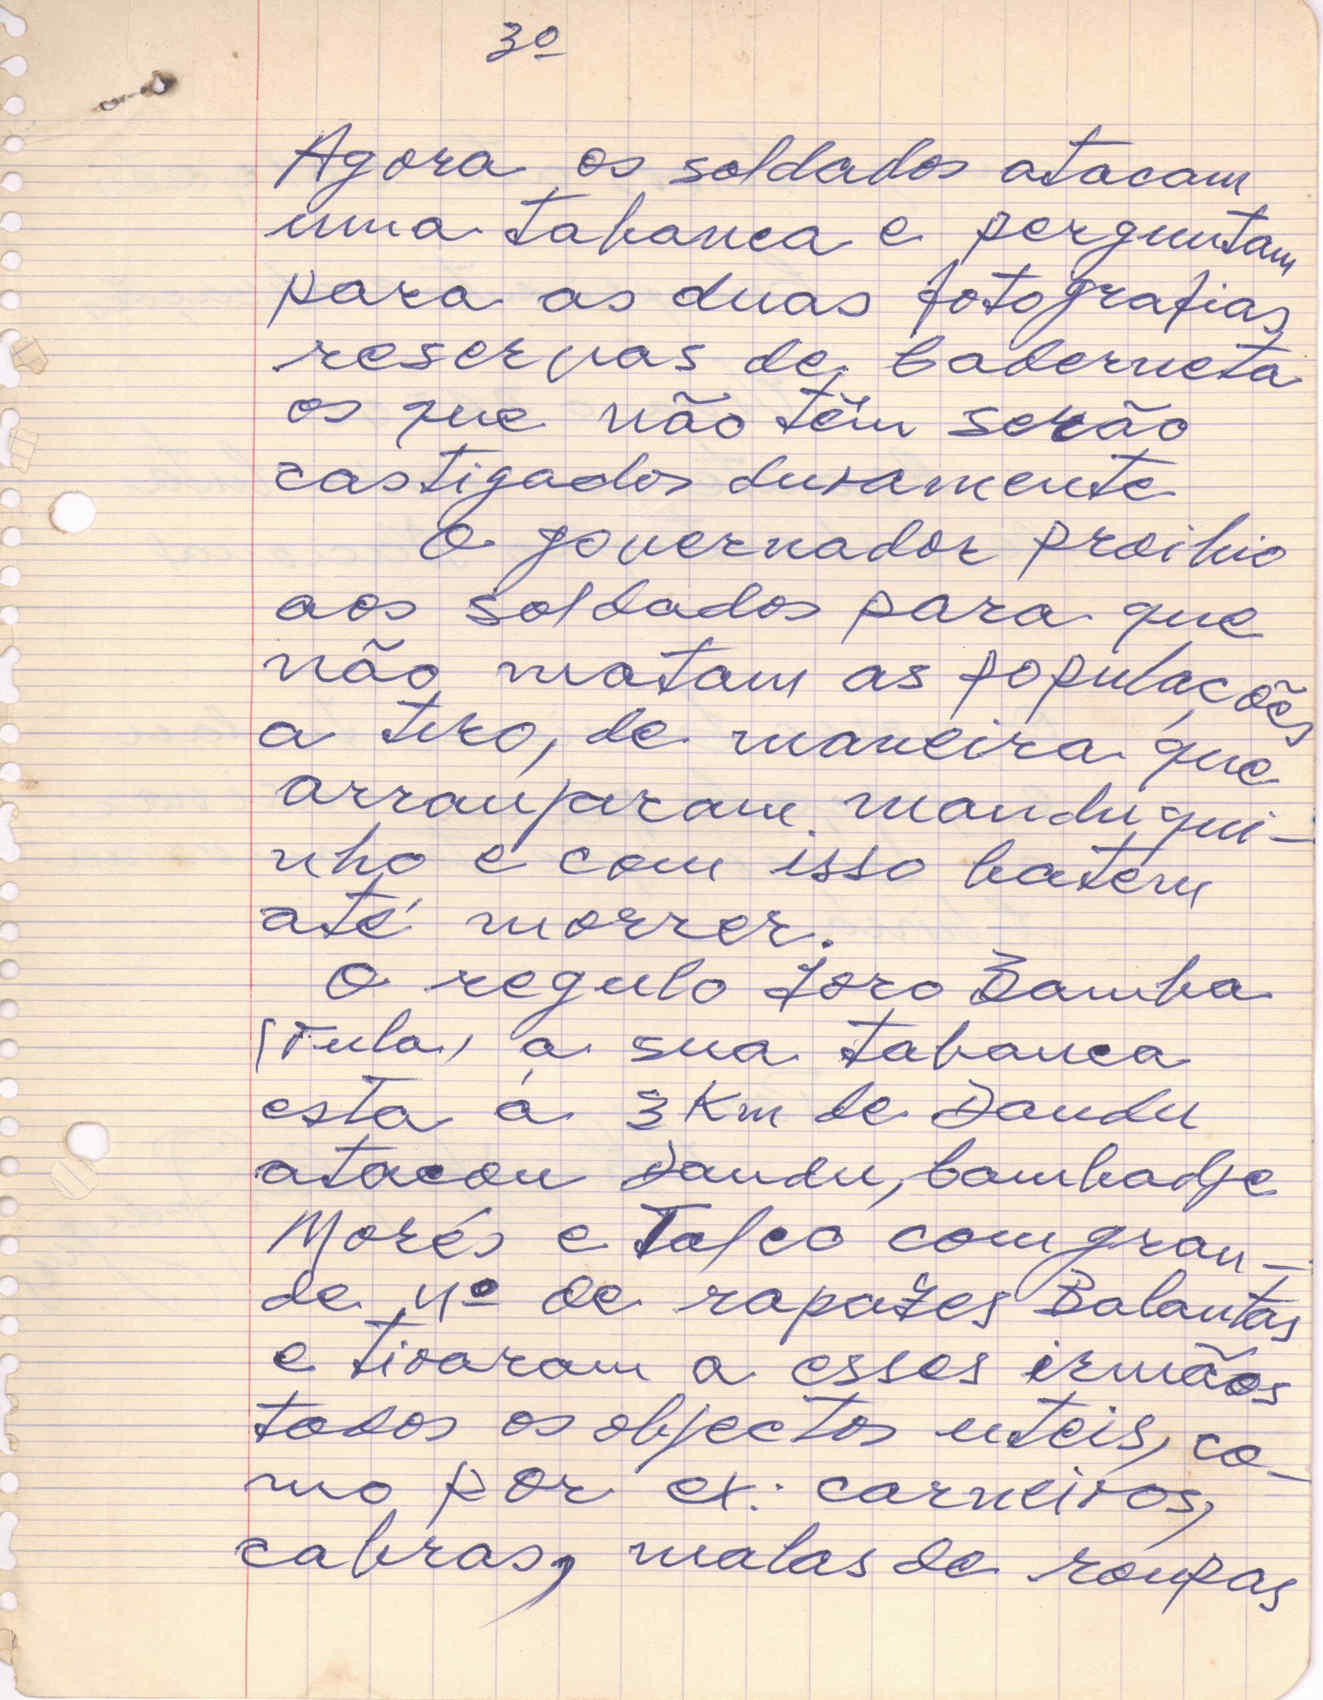 3º
Agora os soldados atacam
uma tabanca e perguntam
para as duas fotografias
reservas de caderneta
os que não têm serão
castigados duramente
O governador proibio
aos soldados para que
não matam as populações
a tiro, de maneira que
arranjaram manduqui-
nho e com isso batem
até morrer.
O regulo Joro Bamba
(Fula) a sua tabanca
esta á 3 Km de Dandu
atacou Dandu, bambadje
Morés e Talco com gran-
de nº de rapazes Balantas
e tiraram a esses irmãos
todos os objectos uteis, co-
mo por ex: carneiros,
cabras, malas de roupas